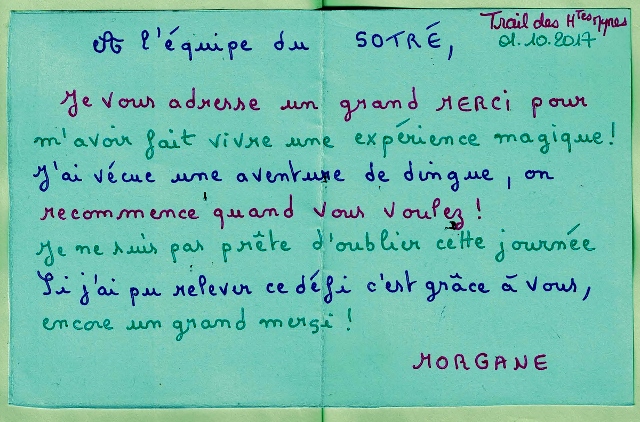 Trail des Htes Mynes
01.10.2017
A l'équipe du SOTRÉ,
Je vous adresse un grand MERCI pour
m'avoir fait vivre une expérience magique!
J'ai vécue une aventure de dingue, on
recommence quand vous voulez!
Je ne suis pas prête d'oublier cette journée
Si j'ai pu relever ce défi c'est grâce à vous,
encore un grand merci!
MORGANE